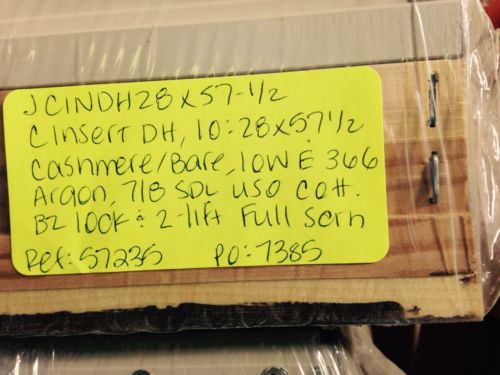 JCINDH28x57-1/2
Cinsert DH, IO:28x57 1/2
Cashmere/Bare, LOW E 366
Argon, 7/8 SDL USO Cott.
BZ lock & 2-lift Full Scrn
Ref: 57235 PO: 7385